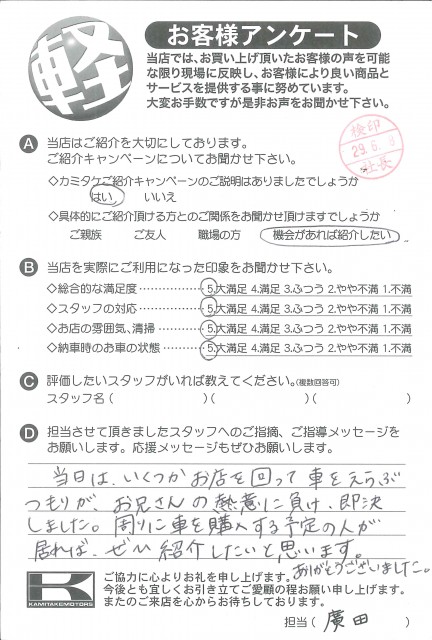 軽
お客様アンケート
当店では、お買い上げ頂いたお客様の声を可能
な限り現場に反映し、お客様により良い商品と
サービスを提供する事に努めています。
大変お手数ですが是非お声をお聞かせ下さい。
検印
29.6.8
社長
A 当店はご紹介を大切にしております。
ご紹介キャンペーンについてお聞かせ下さい。
◇カミタケご紹介キャンペーンのご説明はありましたでしょうか
はい いいえ
◇具体的にご紹介頂ける方とのご関係をお聞かせ頂けますでしょうか
ご親族 ご友人 職場の方 機会があれば紹介したい
B 当店を実際にご利用になった印象をお聞かせ下さい。
◇総合的な満足度………… 5.大満足 4.満足 3.ふつう 2.やや不満 1.不満
◇スタッフの対応………… 5.大満足 4.満足 3.ふつう 2.やや不満 1.不満
◇お店の雰囲気、清掃…… 5.大満足 4.満足 3.ふつう 2.やや不満 1.不満
◇納車時のお車の状態…… 5.大満足 4.満足 3.ふつう 2.やや不満 1.不満
C 評価したいスタッフがいれば教えてください。(複数回答可)
スタッフ名( )( )( )
D 担当させて頂きましたスタッフへのご指摘、ご指導メッセージを
お願いします。応援メッセージもぜひお願いします。
当日は、いくつかお店を回って車をえらぶ
つもりが、お兄さんの熱意に負け、即決
しました。周りに車を購入する予定の人が
居れば、ぜひ紹介したいと思います。
ありがとうございました。
K
KAMITAKEMOTORS
ご協力に心よりお礼を申し上げます。
今後とも宜しくお引き立てご愛顧の程お願い申し上げます。
またのご来店を心からお待ちしております。
担当( 廣田 )